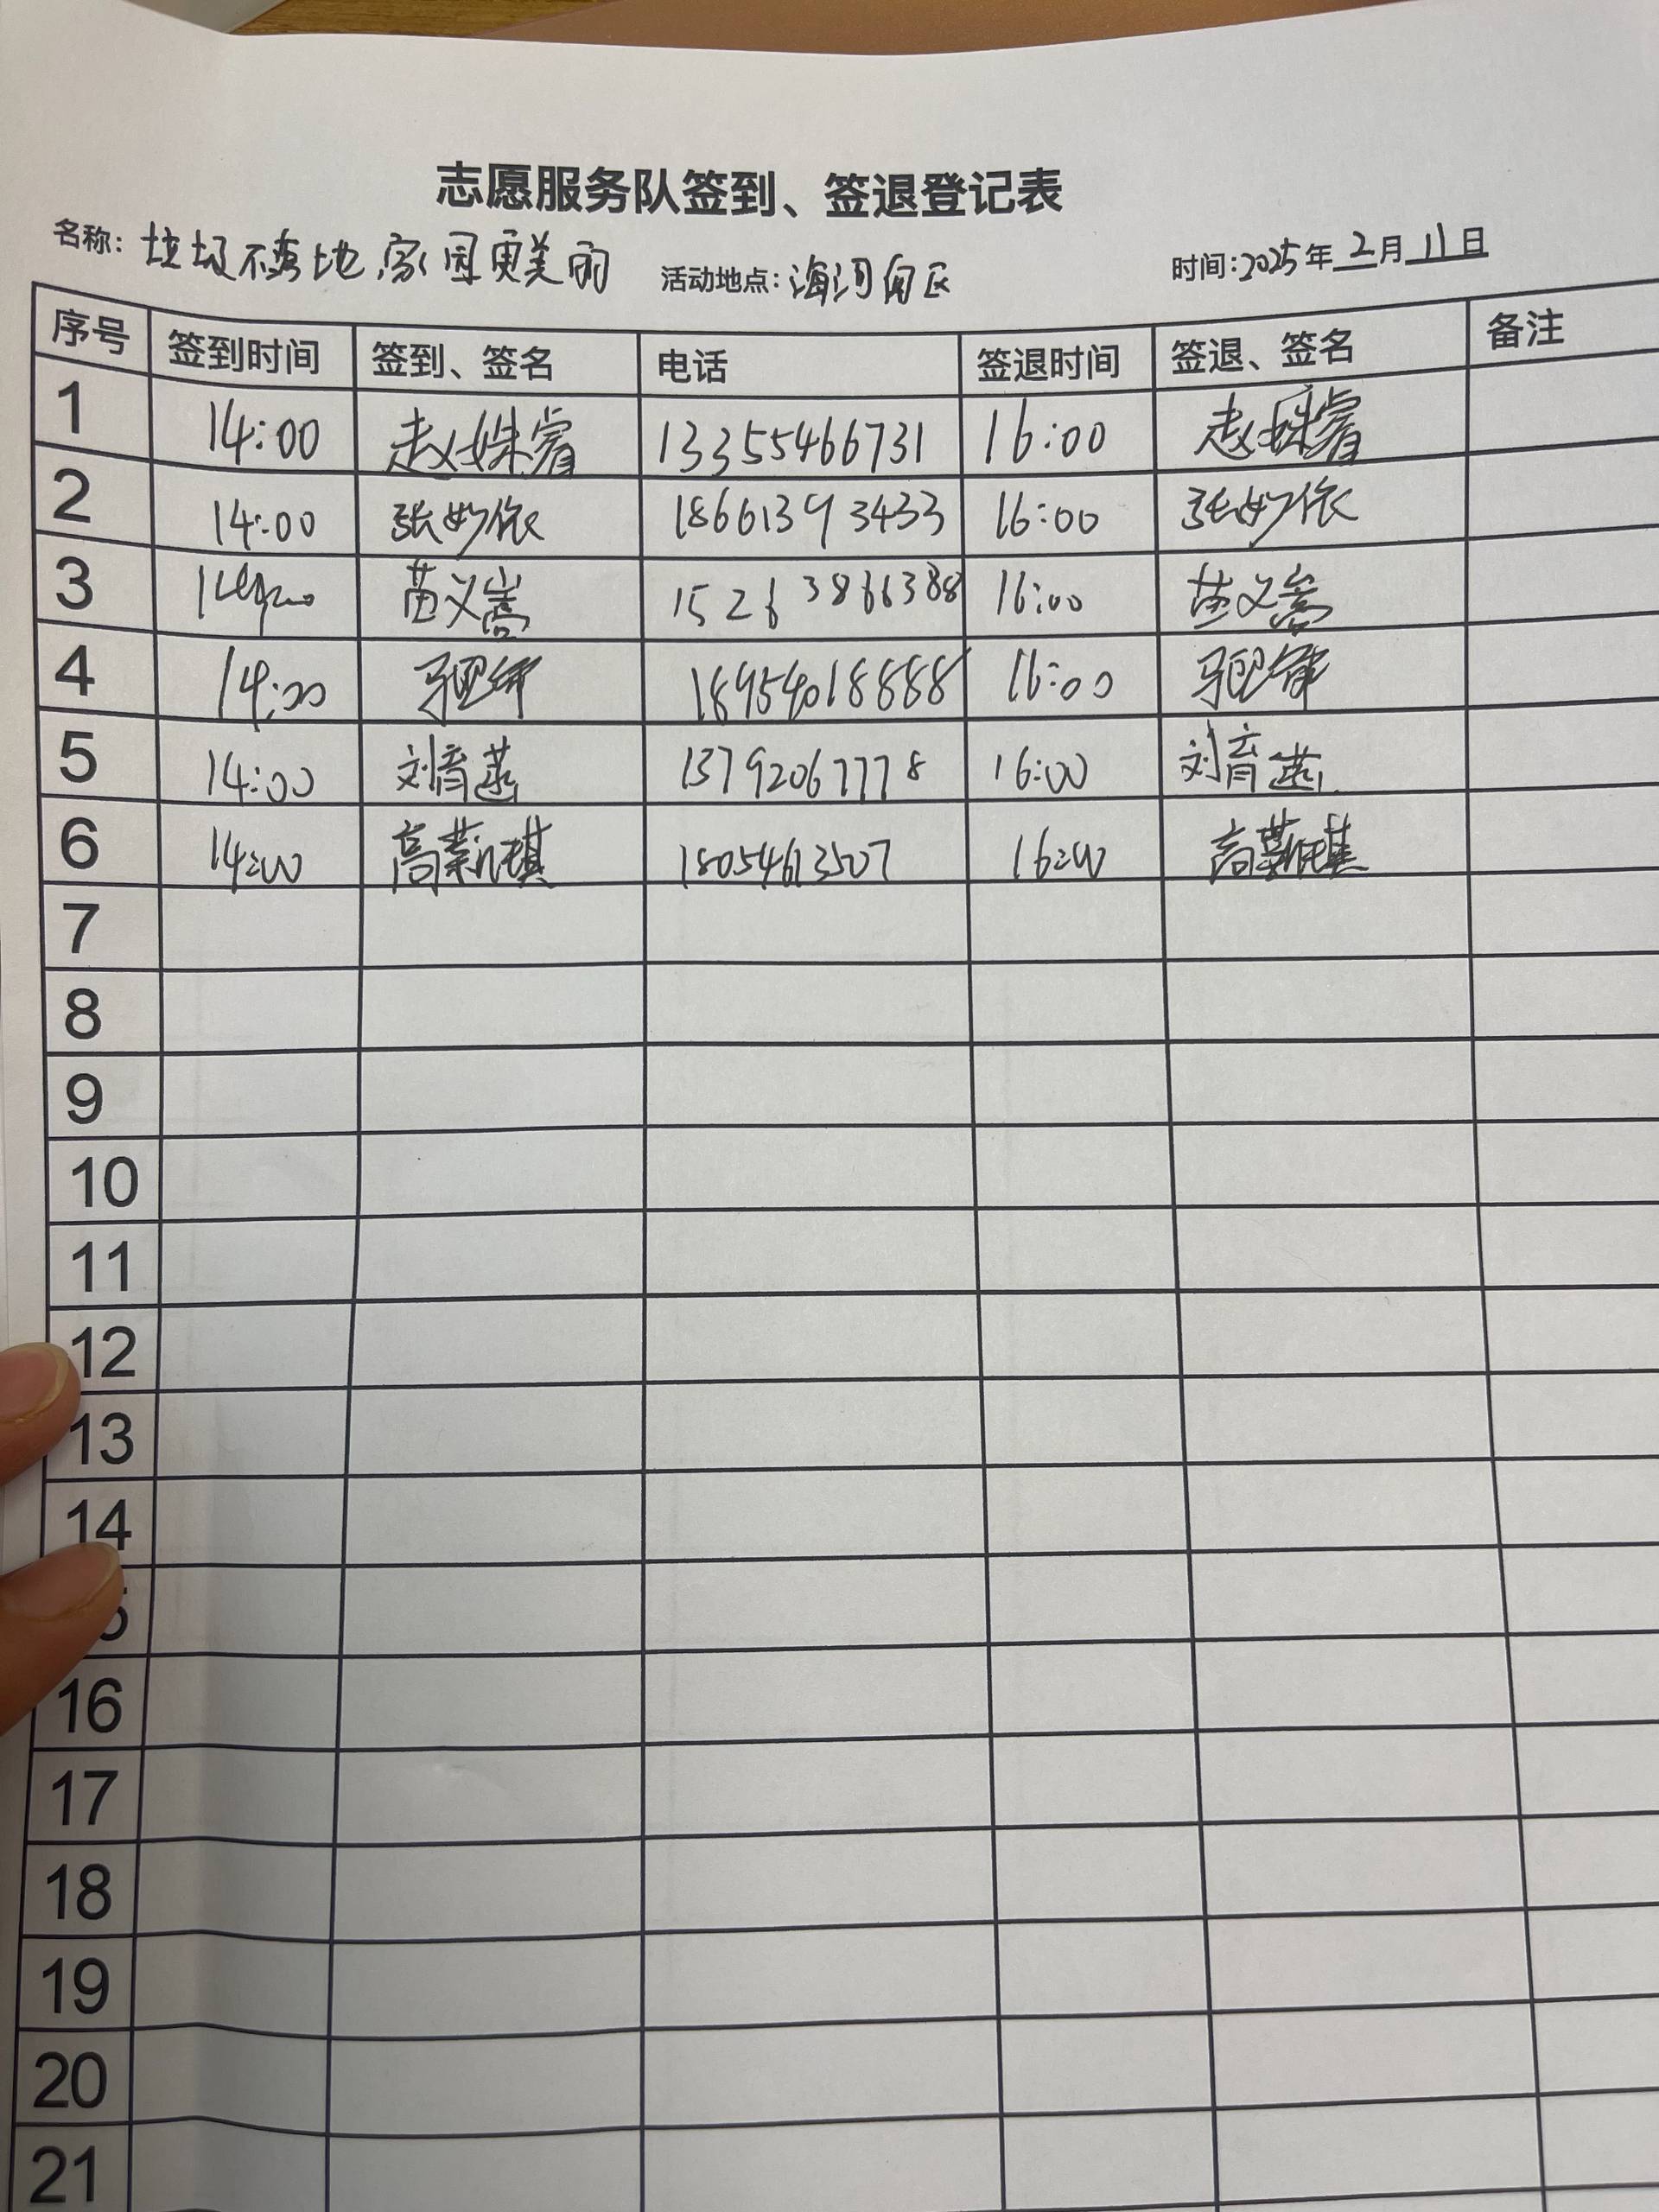 志愿服务队签到、签退登记表
名称: 垃圾不落地,家园更美丽 活动地点: 海河向区 时间:2025年2月11日
序号 签到时间 签到、签名 电话 签退时间 签退、签名 备注
1 14:00 赵姝睿 13355466731 16:00 赵姝睿
2 14:00 张妙依 18661393433 16:00 张妙依
3 苗义嵩 15263866388 16:00 苗义嵩
4 14:00 18954018888 16:00
5 14:00 刘育燕 13792067778 16:00 刘育燕
6 14:00 高薪琪 18054613507 16:00 高薪琪
7
8
9
10
11
12
13
14
16
17
18
19
20
21